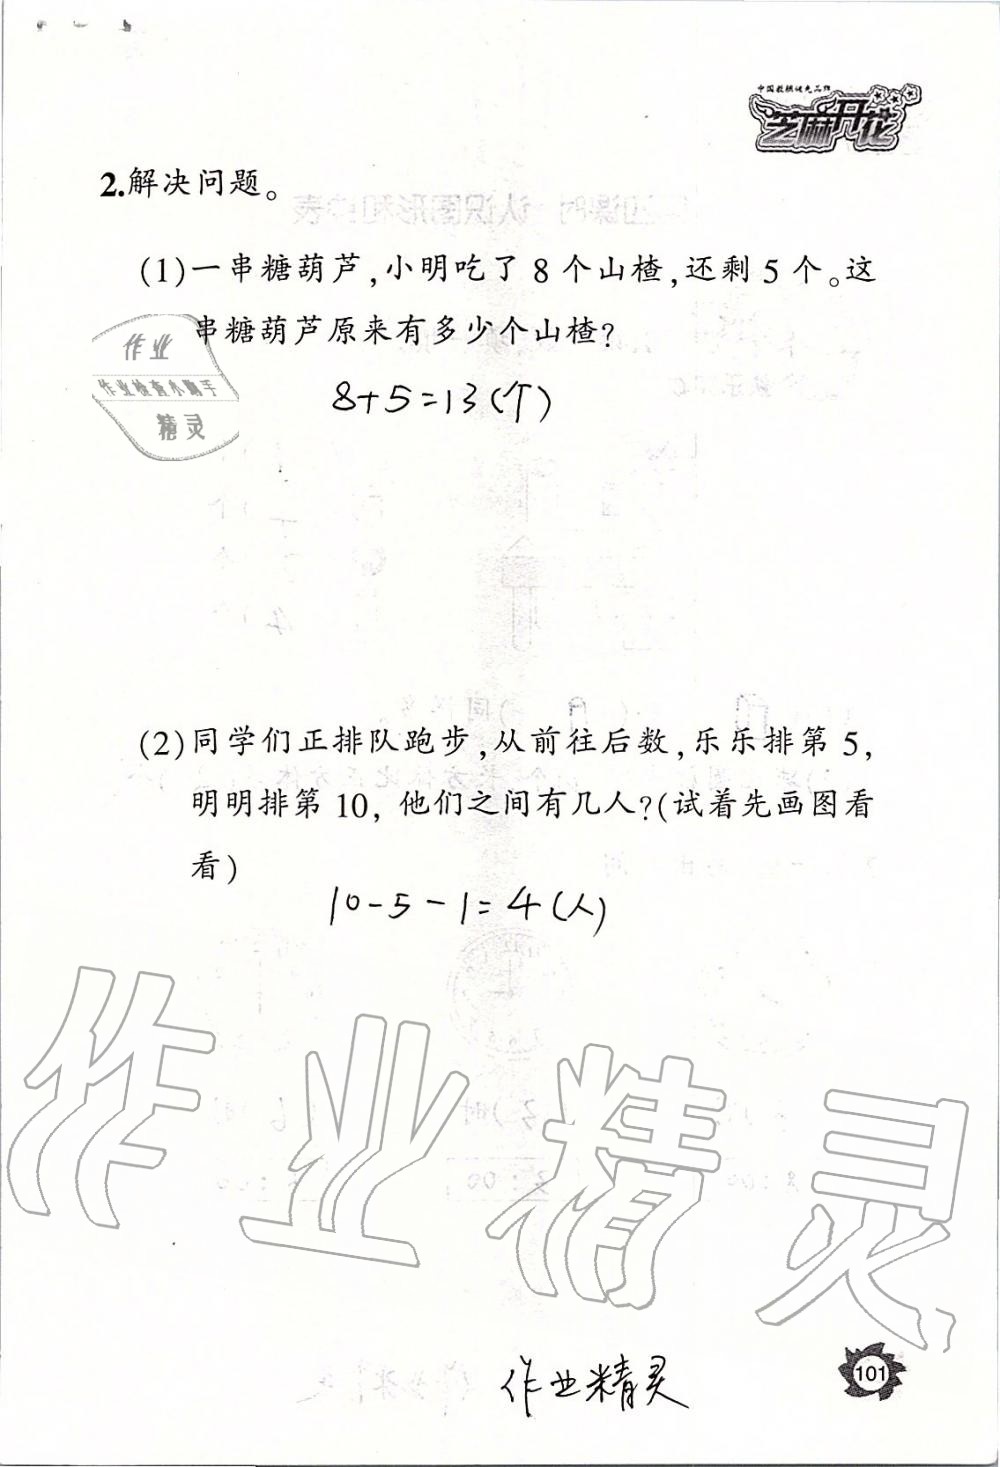 中国教辅领先品牌
芝麻开花
2.解决问题。
(1)一串糖葫芦,小明吃了8个山楂,还剩5个。这
串糖葫芦原来有多少个山楂?
作业
作业检查小助手
精灵
8+5=13(个)
(2)同学们正排队跑步,从前往后数,乐乐排第5,
明明排第10,他们之间有几人?(试着先画图看
看)
10-5-1=4(人)
作业精灵
作业精灵
101